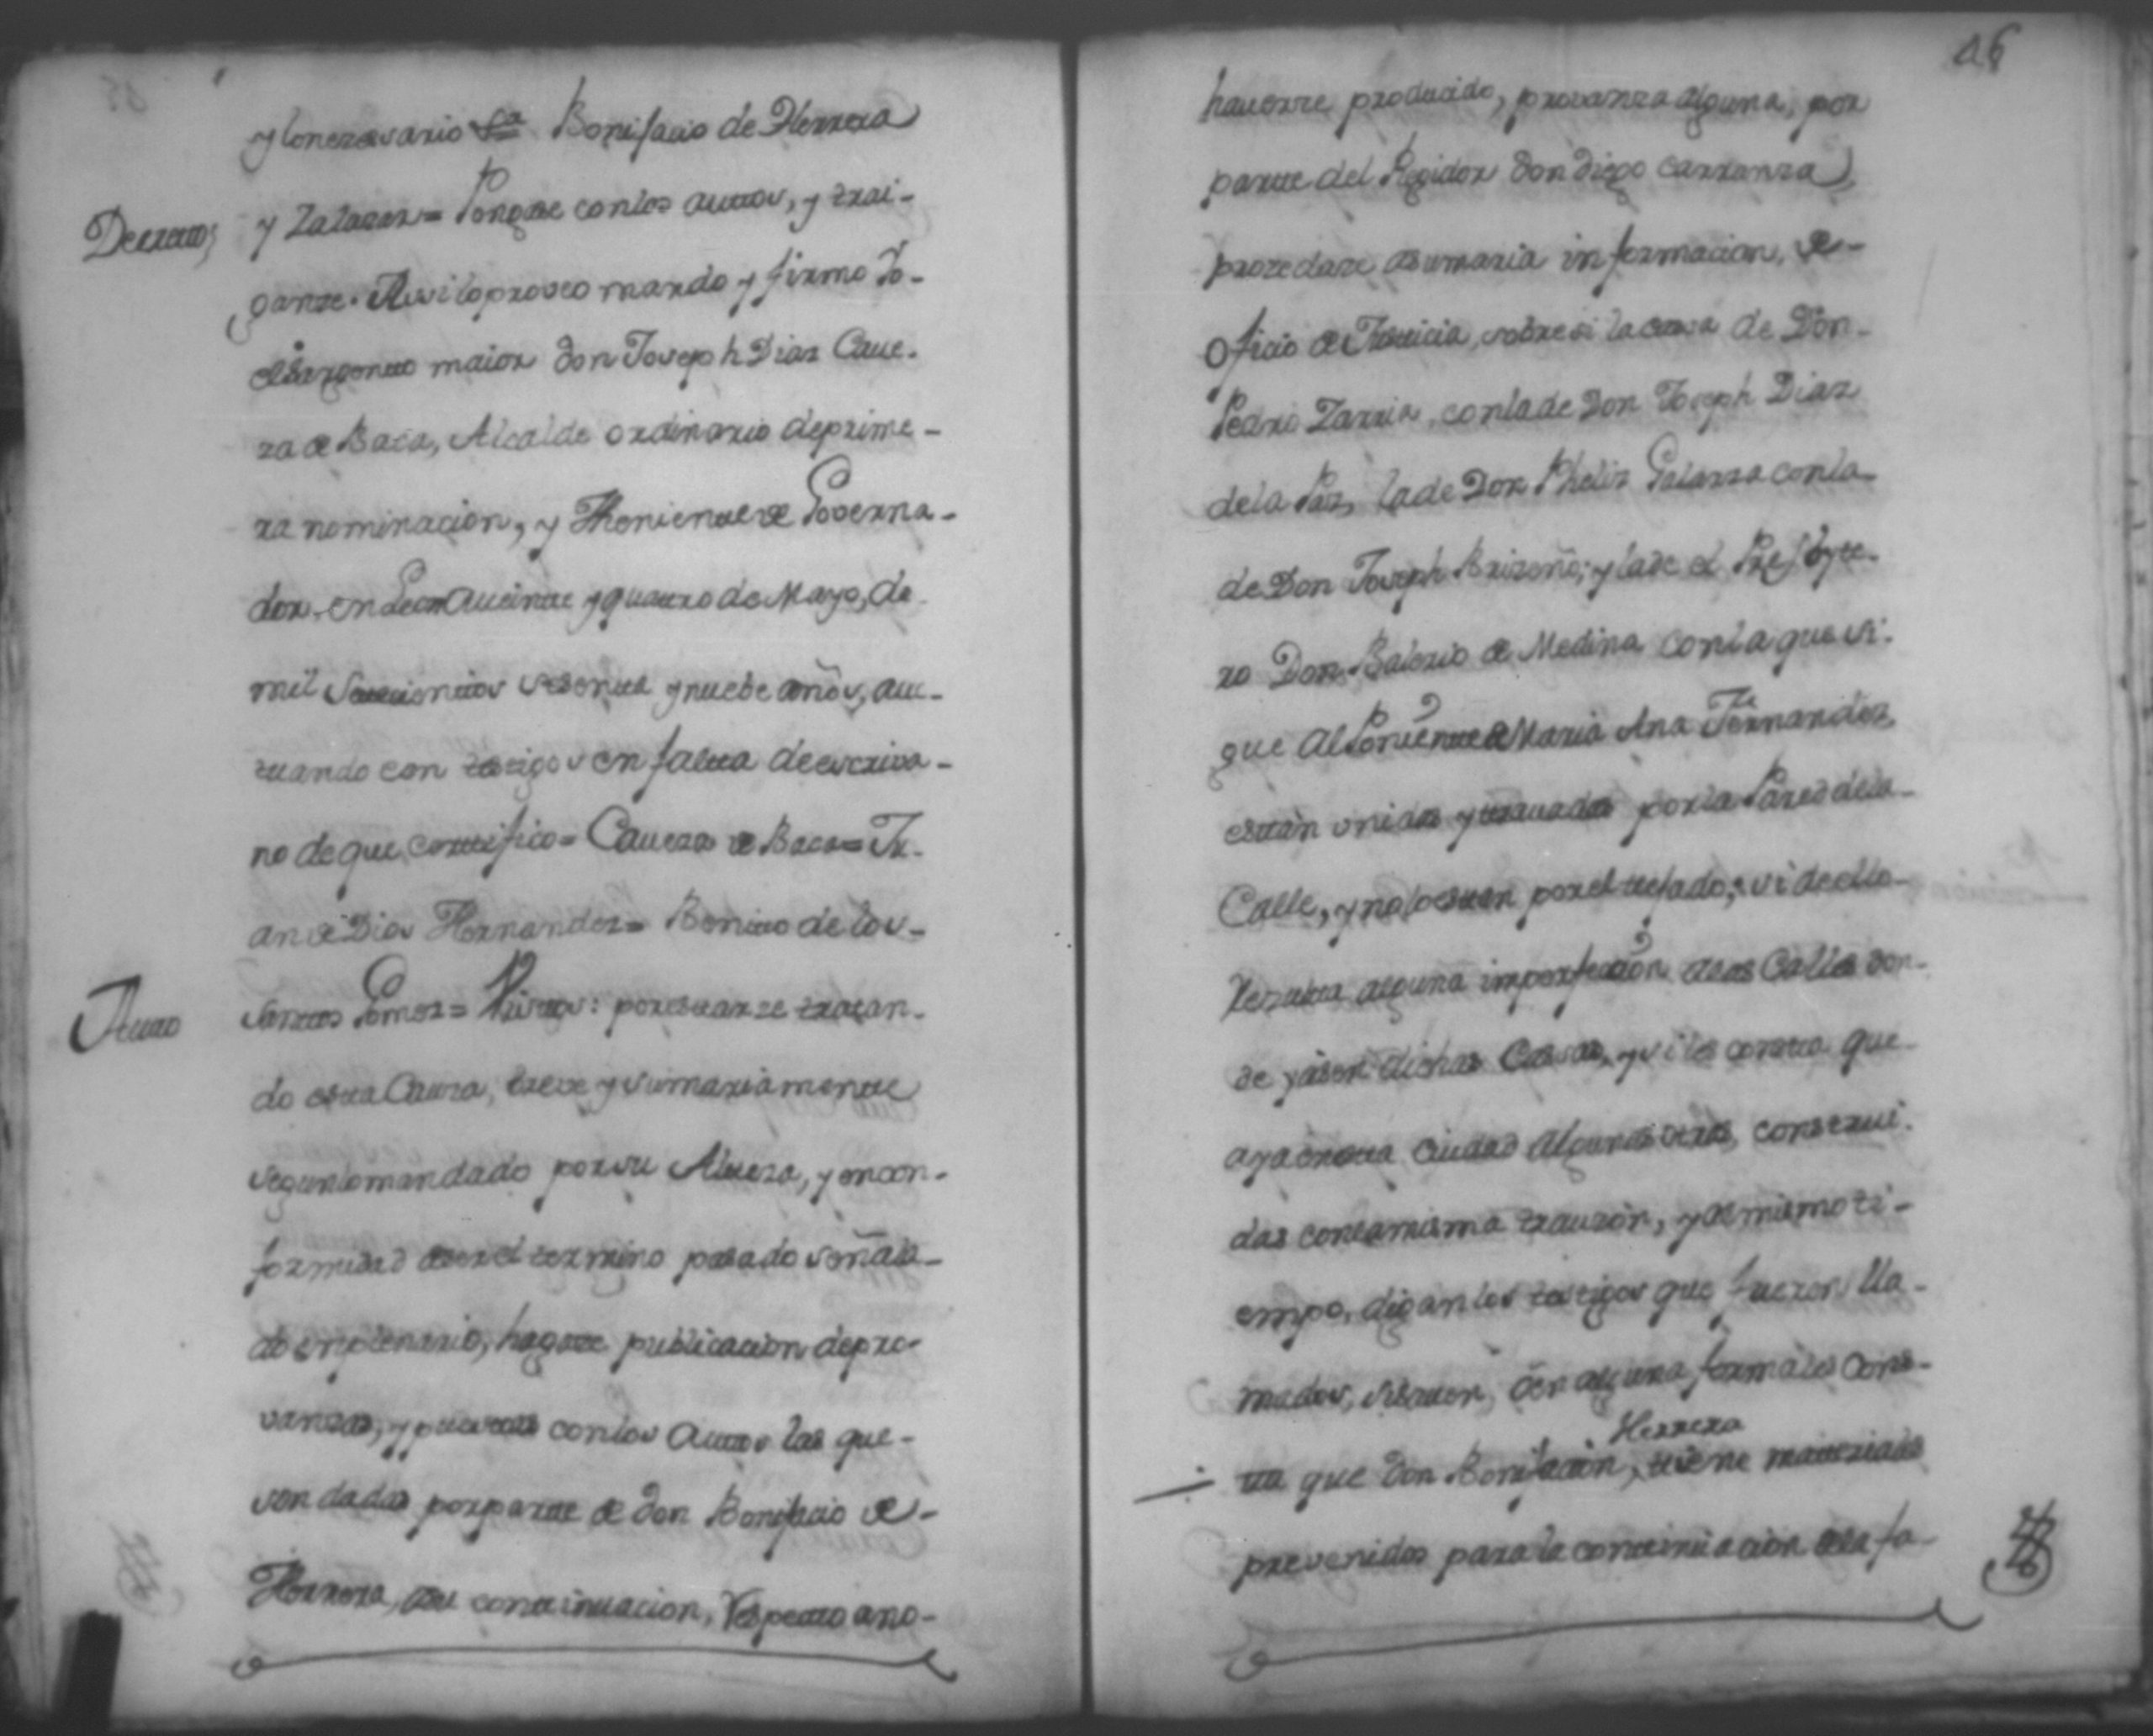 y lonezesario &a Bonifacio de Herrera
Decreto, y Zalazar = Pongase con los autos, y trai-
ganse. Assi lo proveo mando y firmo Yo
el Sargento maior Don Joseph Diaz Cave-
za de Baca, Alcalde ordinario de prime-
ra nominacion, y Theniente de Governa-
dor, en Leon a veinte y quatro de Mayo, de
mil Setecientos sesenta y nuebe años, auc-
tuando con testigos en falta de escriva-
no de que certifico = Caveza de Baca = Ju-
an de Dios Hernandez = Benito de los
Auto Santos Gomez = Vistos: por estarse tratan-
do esta Causa, breve y sumariamente
segun lo mandado por su Alteza, y en con-
formidad de ser el termino pasado señala-
do en plenario, hagase publicacion de pro-
vanzas, y puestas con los autos las que
son dadas por parte de Don Bonifacio de
Herrera, a su continuacion, Respecto ano-
46
haverse producido, provanza alguna, por
parte del Regidor Don Diego Carranza,
prozedase a sumaria informacion, de
Oficio de Justicia, sobre si la casa de Don
Pedro Zarria, con la de Don Joseph Diaz
de la Paz, la de Don Pheliz Galarza con la
de Don Joseph Brizeño; y la de el Presbyte-
ro Don Balerio de Medina con la que si-
gue al Poniente de Maria Ana Fernandez,
estan unidas y travadas por la Pared de la
Calle, y no lo estan por el tejado; si de ello
Resulta alguna imperfeccion a las Calles don-
de yasen dichas Casas, y si les consta que
aya en esta Ciudad algunas otras, construi-
das con la misma travazon, y al mismo ti-
empo, digan los testigos que fueron lla-
mados, si saben, o en alguna forma les cons-
Herrera
ta que Don Bonifacion, tiene materiales
prevenidos para la continuacion de la fa-